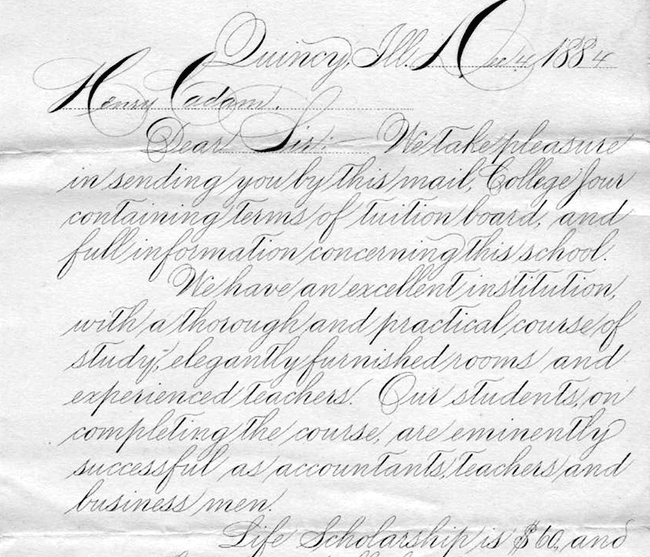 Quincy, Ill. Dec 4, 1884
Henry Cadam.
Dear Sir: We take pleasure
in sending you by this mail, College Jour
containing terms of tuition board, and
full information concerning this school.
We have an excellent institution,
with a thorough and practical course of
study, elegantly furnished rooms and
experienced teachers. Our students, on
completing the course, are eminently
successful as accountants, teachers and
business men.
Life Scholarship is $60, and